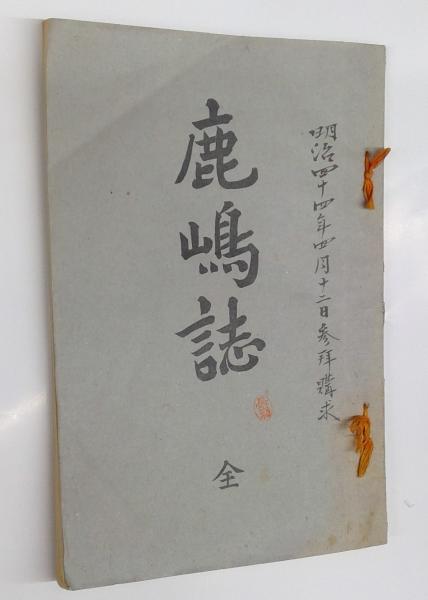 明治四十四年四月十二日参拝購求
鹿嶋誌
全